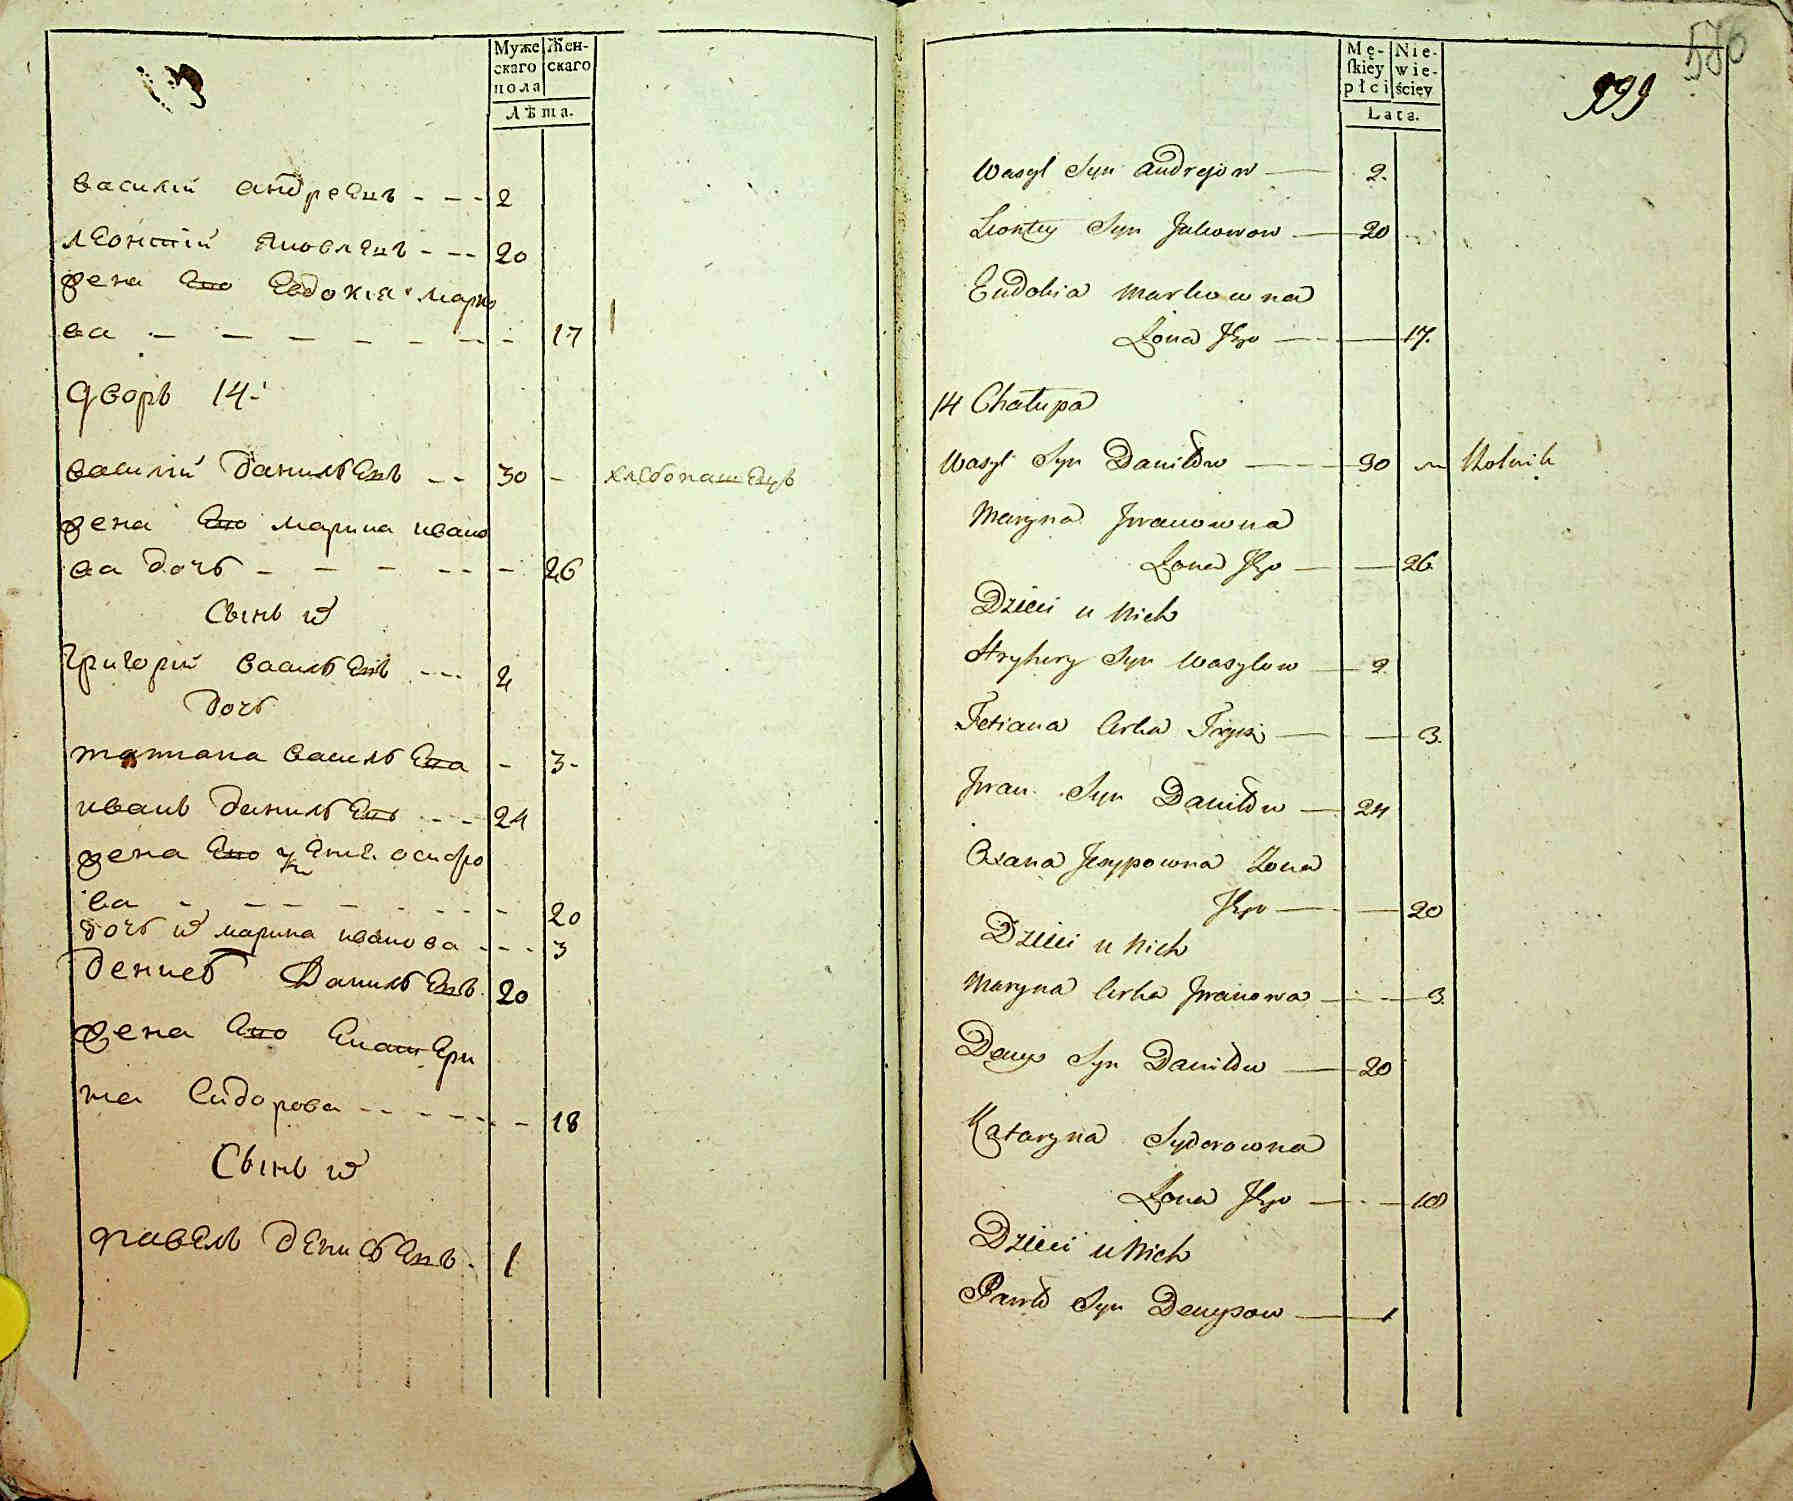 Муже
скаго
пола
Жен-
скаго
Лѣта.
13
василий андреевъ - - - 2
леонтий яковлевъ - - - 20
жена ево Евдокия марко
ва - - - - - - - 17
дворъ 14-й
василий данильевъ - - 30 - хлебопашецъ
жена ево марина ивано
ва дочь - - - - - - 26
Сынъ их
григорий васильевъ - - - 2
дочь
татиана васильева - 3-
иванъ данильевъ - - - 24
жена ево осифо
ва - - - - - - - 20
дочь их марина иванова - - - 3
денисъ Данильевъ 20
жена ево Екатери
на Сидорова - - - - - - 18
Сынъ их
павелъ денисьевъ - 1
Mę-
skiey
płci
Nie-
wie-
ściey
Lata.
999
586
Wasyl Syn Andrejow — 2.
Leontey Syn Jakowow — 20
Eudokia Markowna
Żona Jego — 17.
14 Chałupa
Wasyl Syn Daniłow — 30 Rolnik
Maryna Jwanowna
Żona Jego — 26
Dzieci u Nich
Hryhory Syn Wasylow — 2.
Tetiana Corka — 3.
Jwan Syn Daniłow — 24
Oxana Jesypowna Żona
Jego — 20
Dzieci u Nich
Maryna Corka Jwanowa — 3.
Denys Syn Daniłow — 20
Kataryna Sydorowna
Żona Jego — 18
Dzieci u Nich
Pawło Syn Denysow — 1